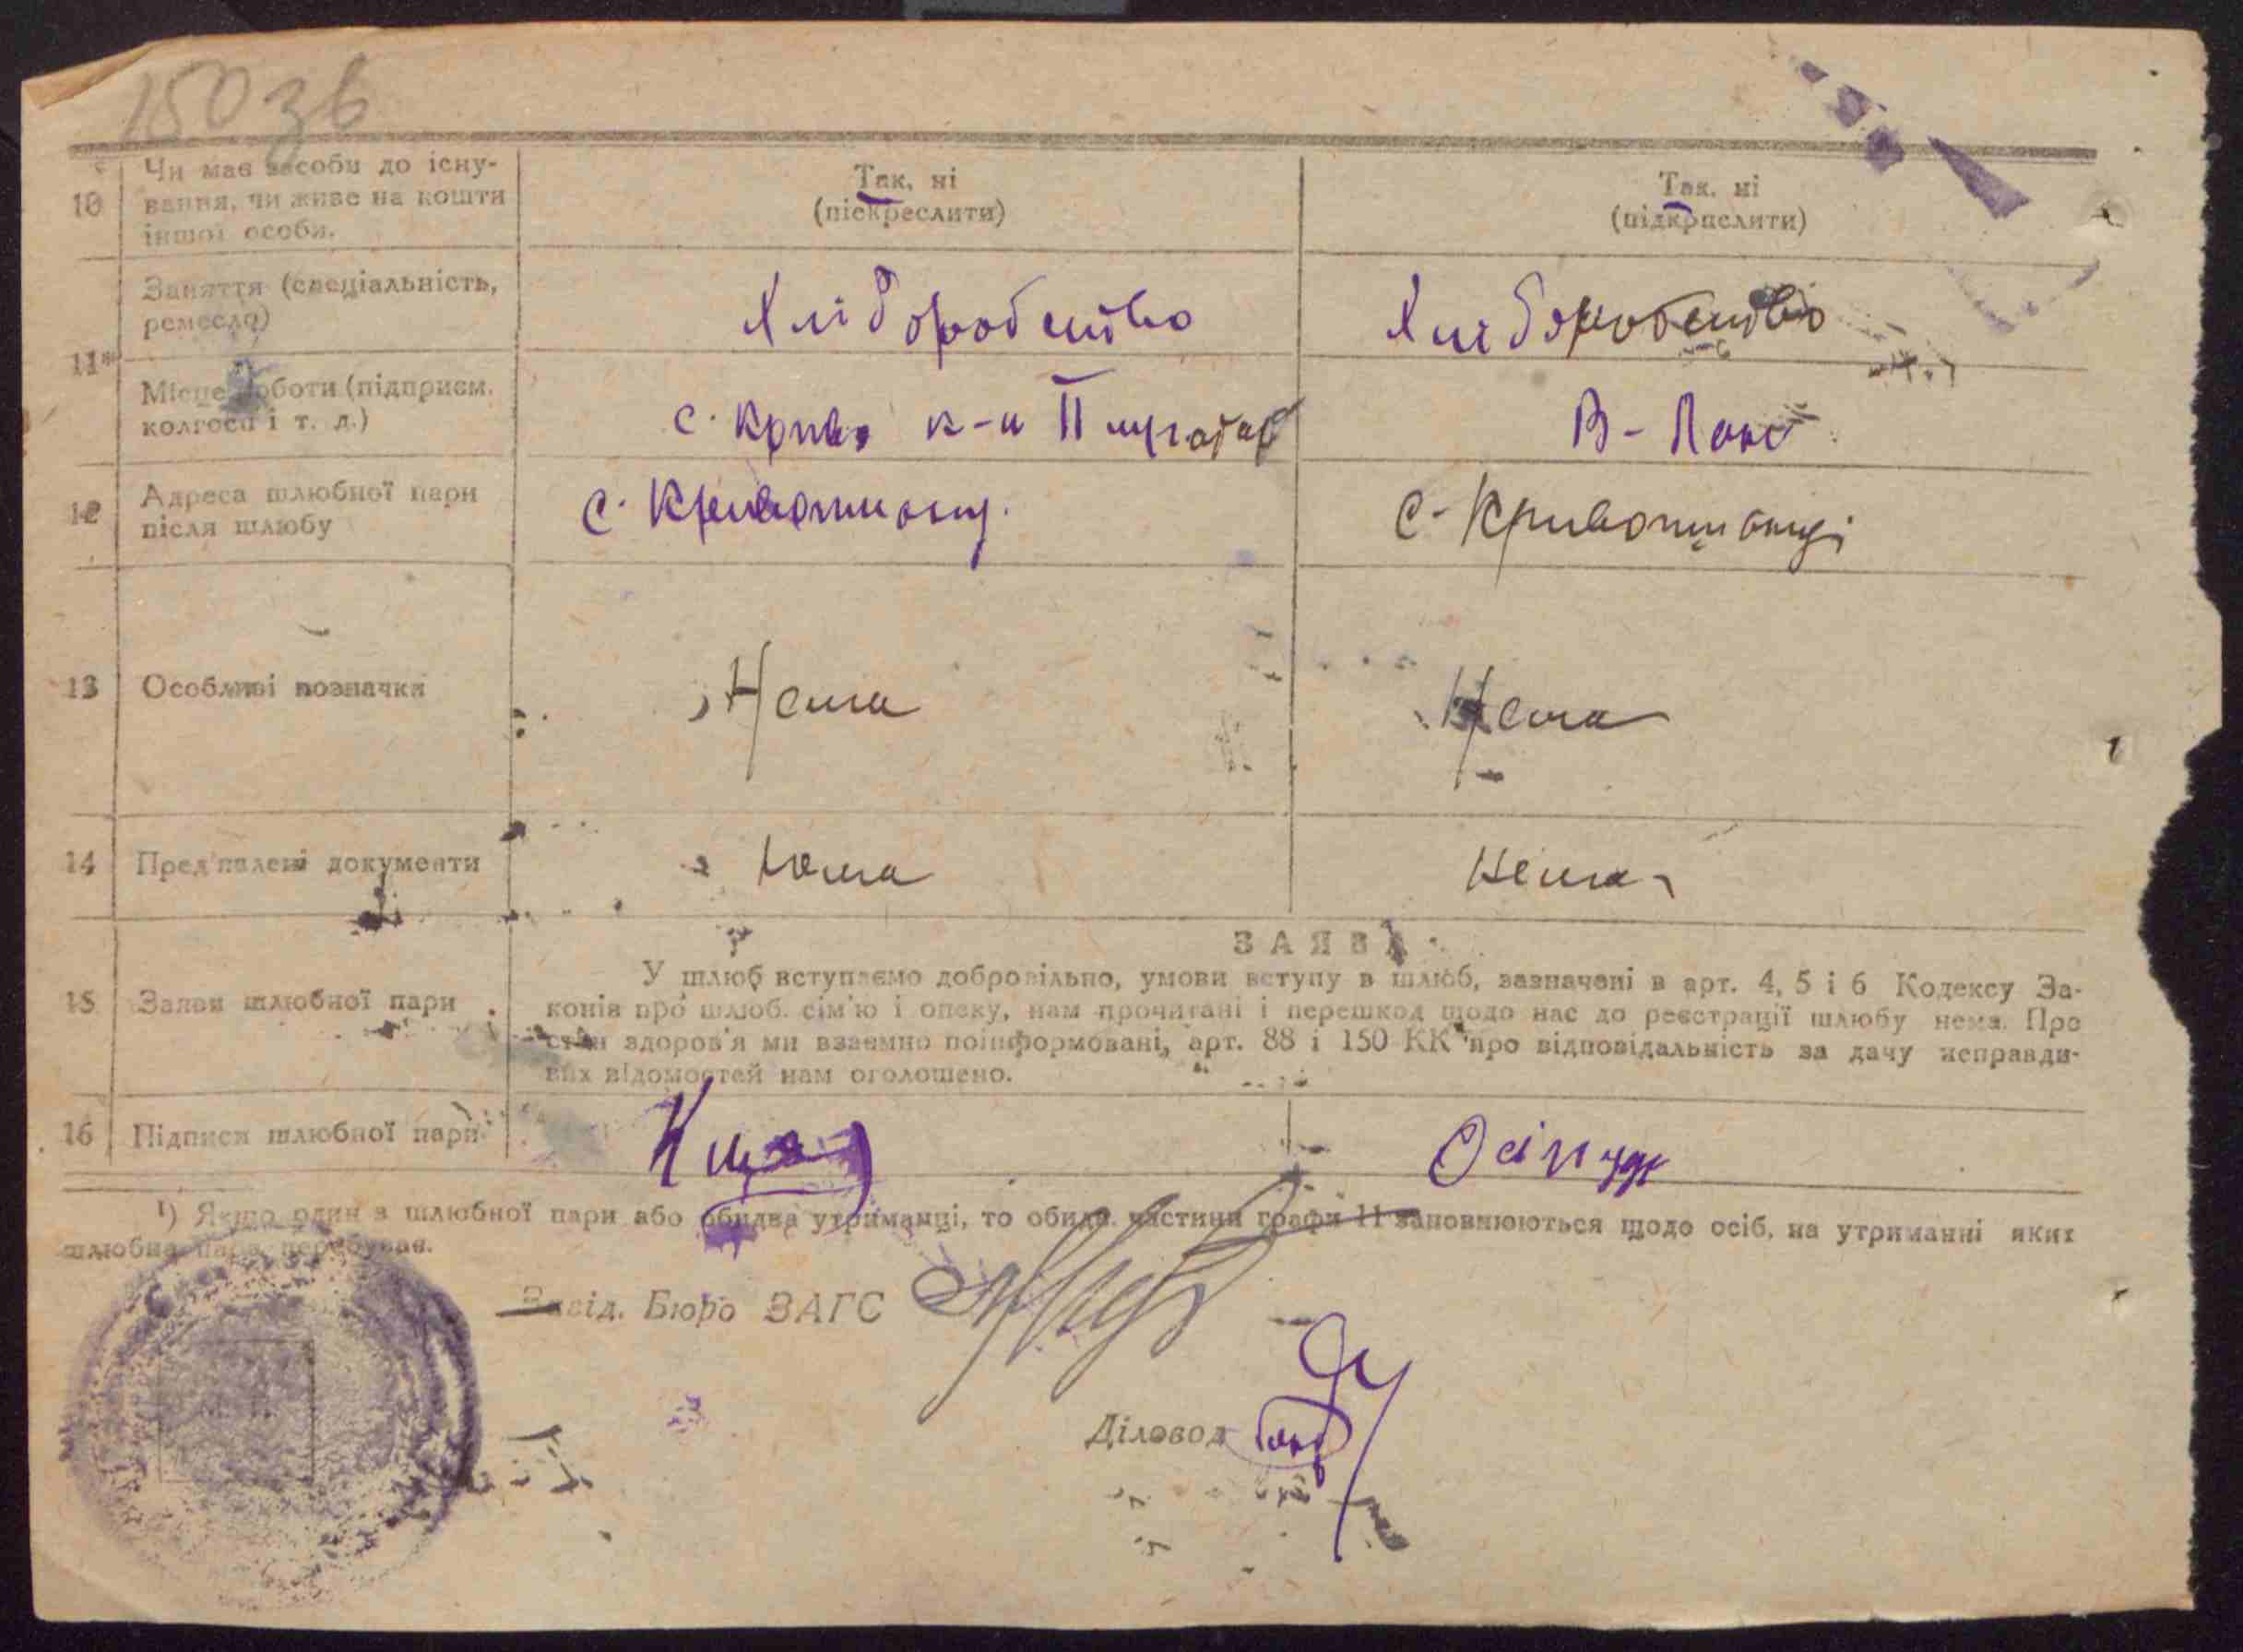 150 зв
10 Чи має засоби до існу-
вання, чи живе на кошти
іншої особи.
Так, ні
(піскреслити)
Так, ні
(підкрислити)
11*
Заняття (спеціальність,
ремесло)
Хліборобство
Хліборобство
Місце роботи (підприєм.
колгосп і т. д.)
с. Крив. к-п Плугатар
В-
12 Адреса шлюбної пари
після шлюбу
с. Кривошиєнц.
с. Кривошиєнці
13 Особливі позначки
Нема
Нема
14 Пред'явлені документи
Нема
Нема
15 Заяви шлюбної пари
ЗАЯВА
У шлюб вступаємо добровільно, умови вступу в шлюб, зазначені в арт. 4, 5 і 6 Кодексу За-
конів про шлюб. сім'ю і опеку, нам прочитані і перешкод щодо нас до реєстрації шлюбу нема. Про
стан здоров'я ми взаємно поінформовані, арт. 88 і 150 КК про відповідальність за дачу неправди-
вих відомостей нам оголошено.
16 Підписи шлюбної пари
¹) Якщо один з шлюбної пари або обидва утриманці, то обидві частини графи 11 заповнюються щодо осіб, на утриманні яких
шлюбна пара перебуває.
Завід. Бюро ЗАГС
Діловод